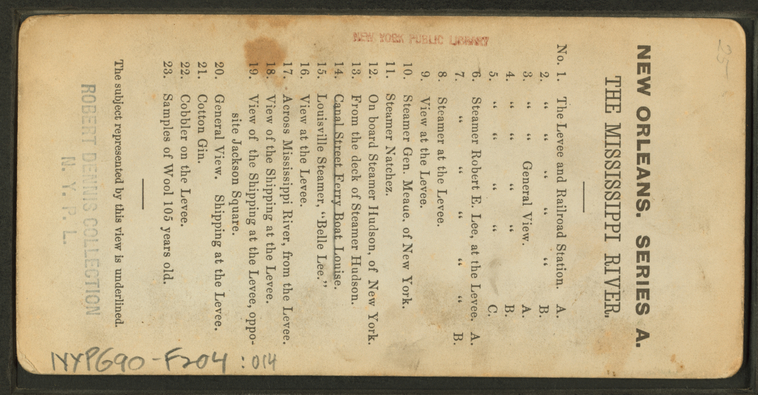 NEW ORLEANS. SERIES A.
THE MISSISSIPPI RIVER.
No. 1. The Levee and Railroad Station. A.
2. " " " " " B.
3. " " General View. A.
4. " " " " B.
5. " " " " C.
6. Steamer Robert E. Lee, at the Levee. A.
7. " " " " " " B.
8. Steamer at the Levee.
9. View at the Levee.
10. Steamer Gen. Meaue, of New York.
11. Steamer Natchez.
12. On board Steamer Hudson, of New York.
13. From the deck of Steamer Hudson.
14. Canal Street Ferry Boat Louise.
15. Louisville Steamer, "Belle Lee."
16. View at the Levee.
17. Across Mississippi River, from the Levee.
18. View of the Shipping at the Levee.
19. View of the Shipping at the Levee, oppo-
site Jackson Square.
20. General View. Shipping at the Levee.
21. Cotton Gin.
22. Cobbler on the Levee.
23. Samples of Wool 105 years old.
The subject represented by this view is underlined.
ROBERT DENNIS COLLECTION
N. Y. P. L.
NEW YORK PUBLIC LIBRARY
NYPG90-F204 :014